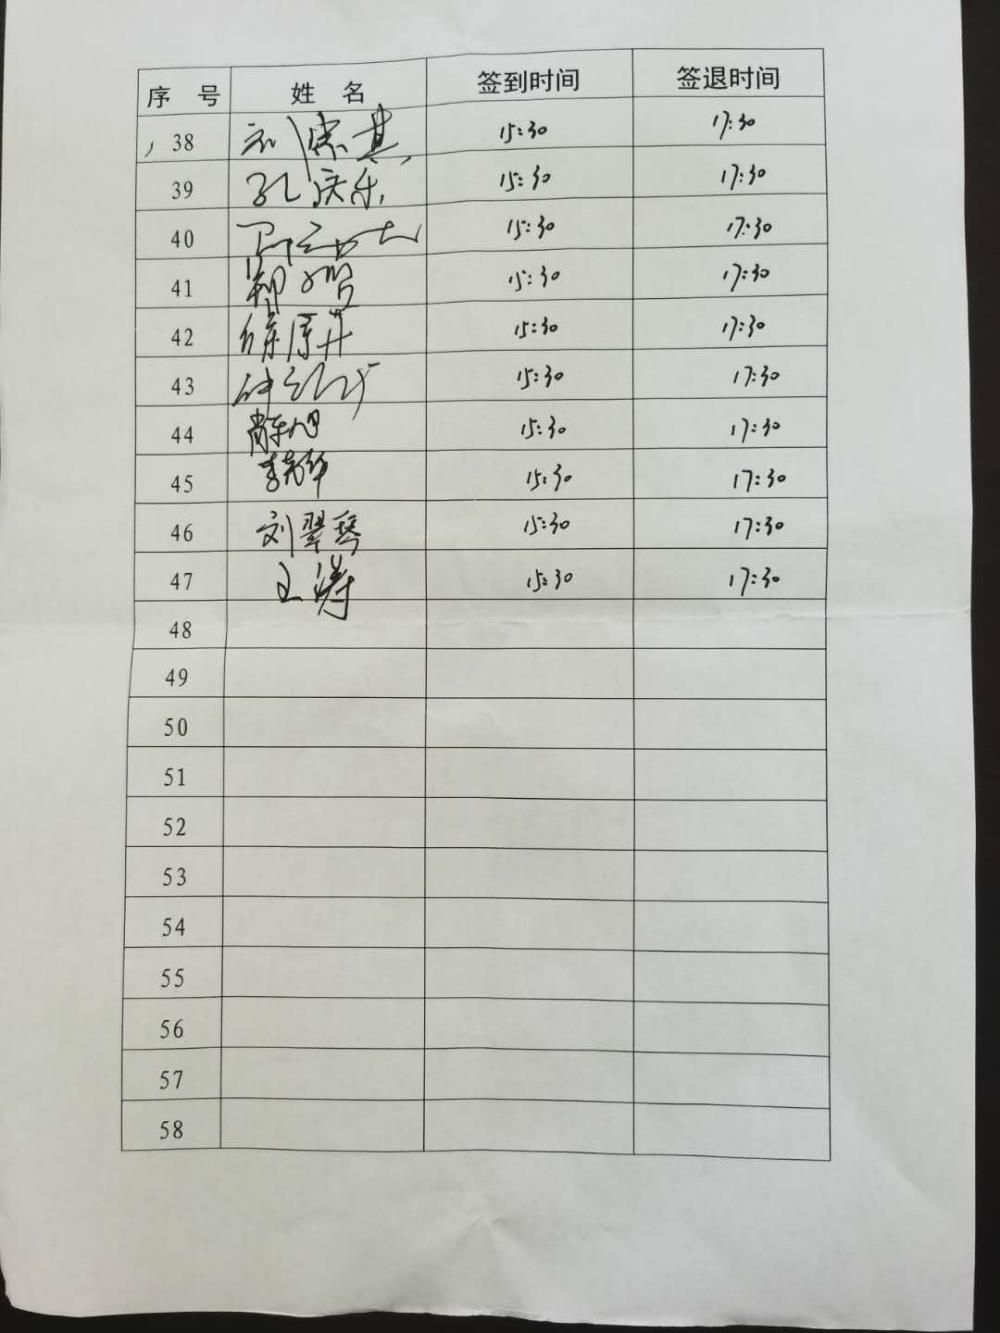 序 号 姓 名 签到时间 签退时间
38 15:30 17:30
39 孔庆乐 15:30 17:30
40 15:30 17:30
41 15:30 17:30
42 15:30 17:30
43 15:30 17:30
44 15:30 17:30
45 15:30 17:30
46 刘翠琴 15:30 17:30
47 王涛 15:30 17:30
48
49
50
51
52
53
54
55
56
57
58